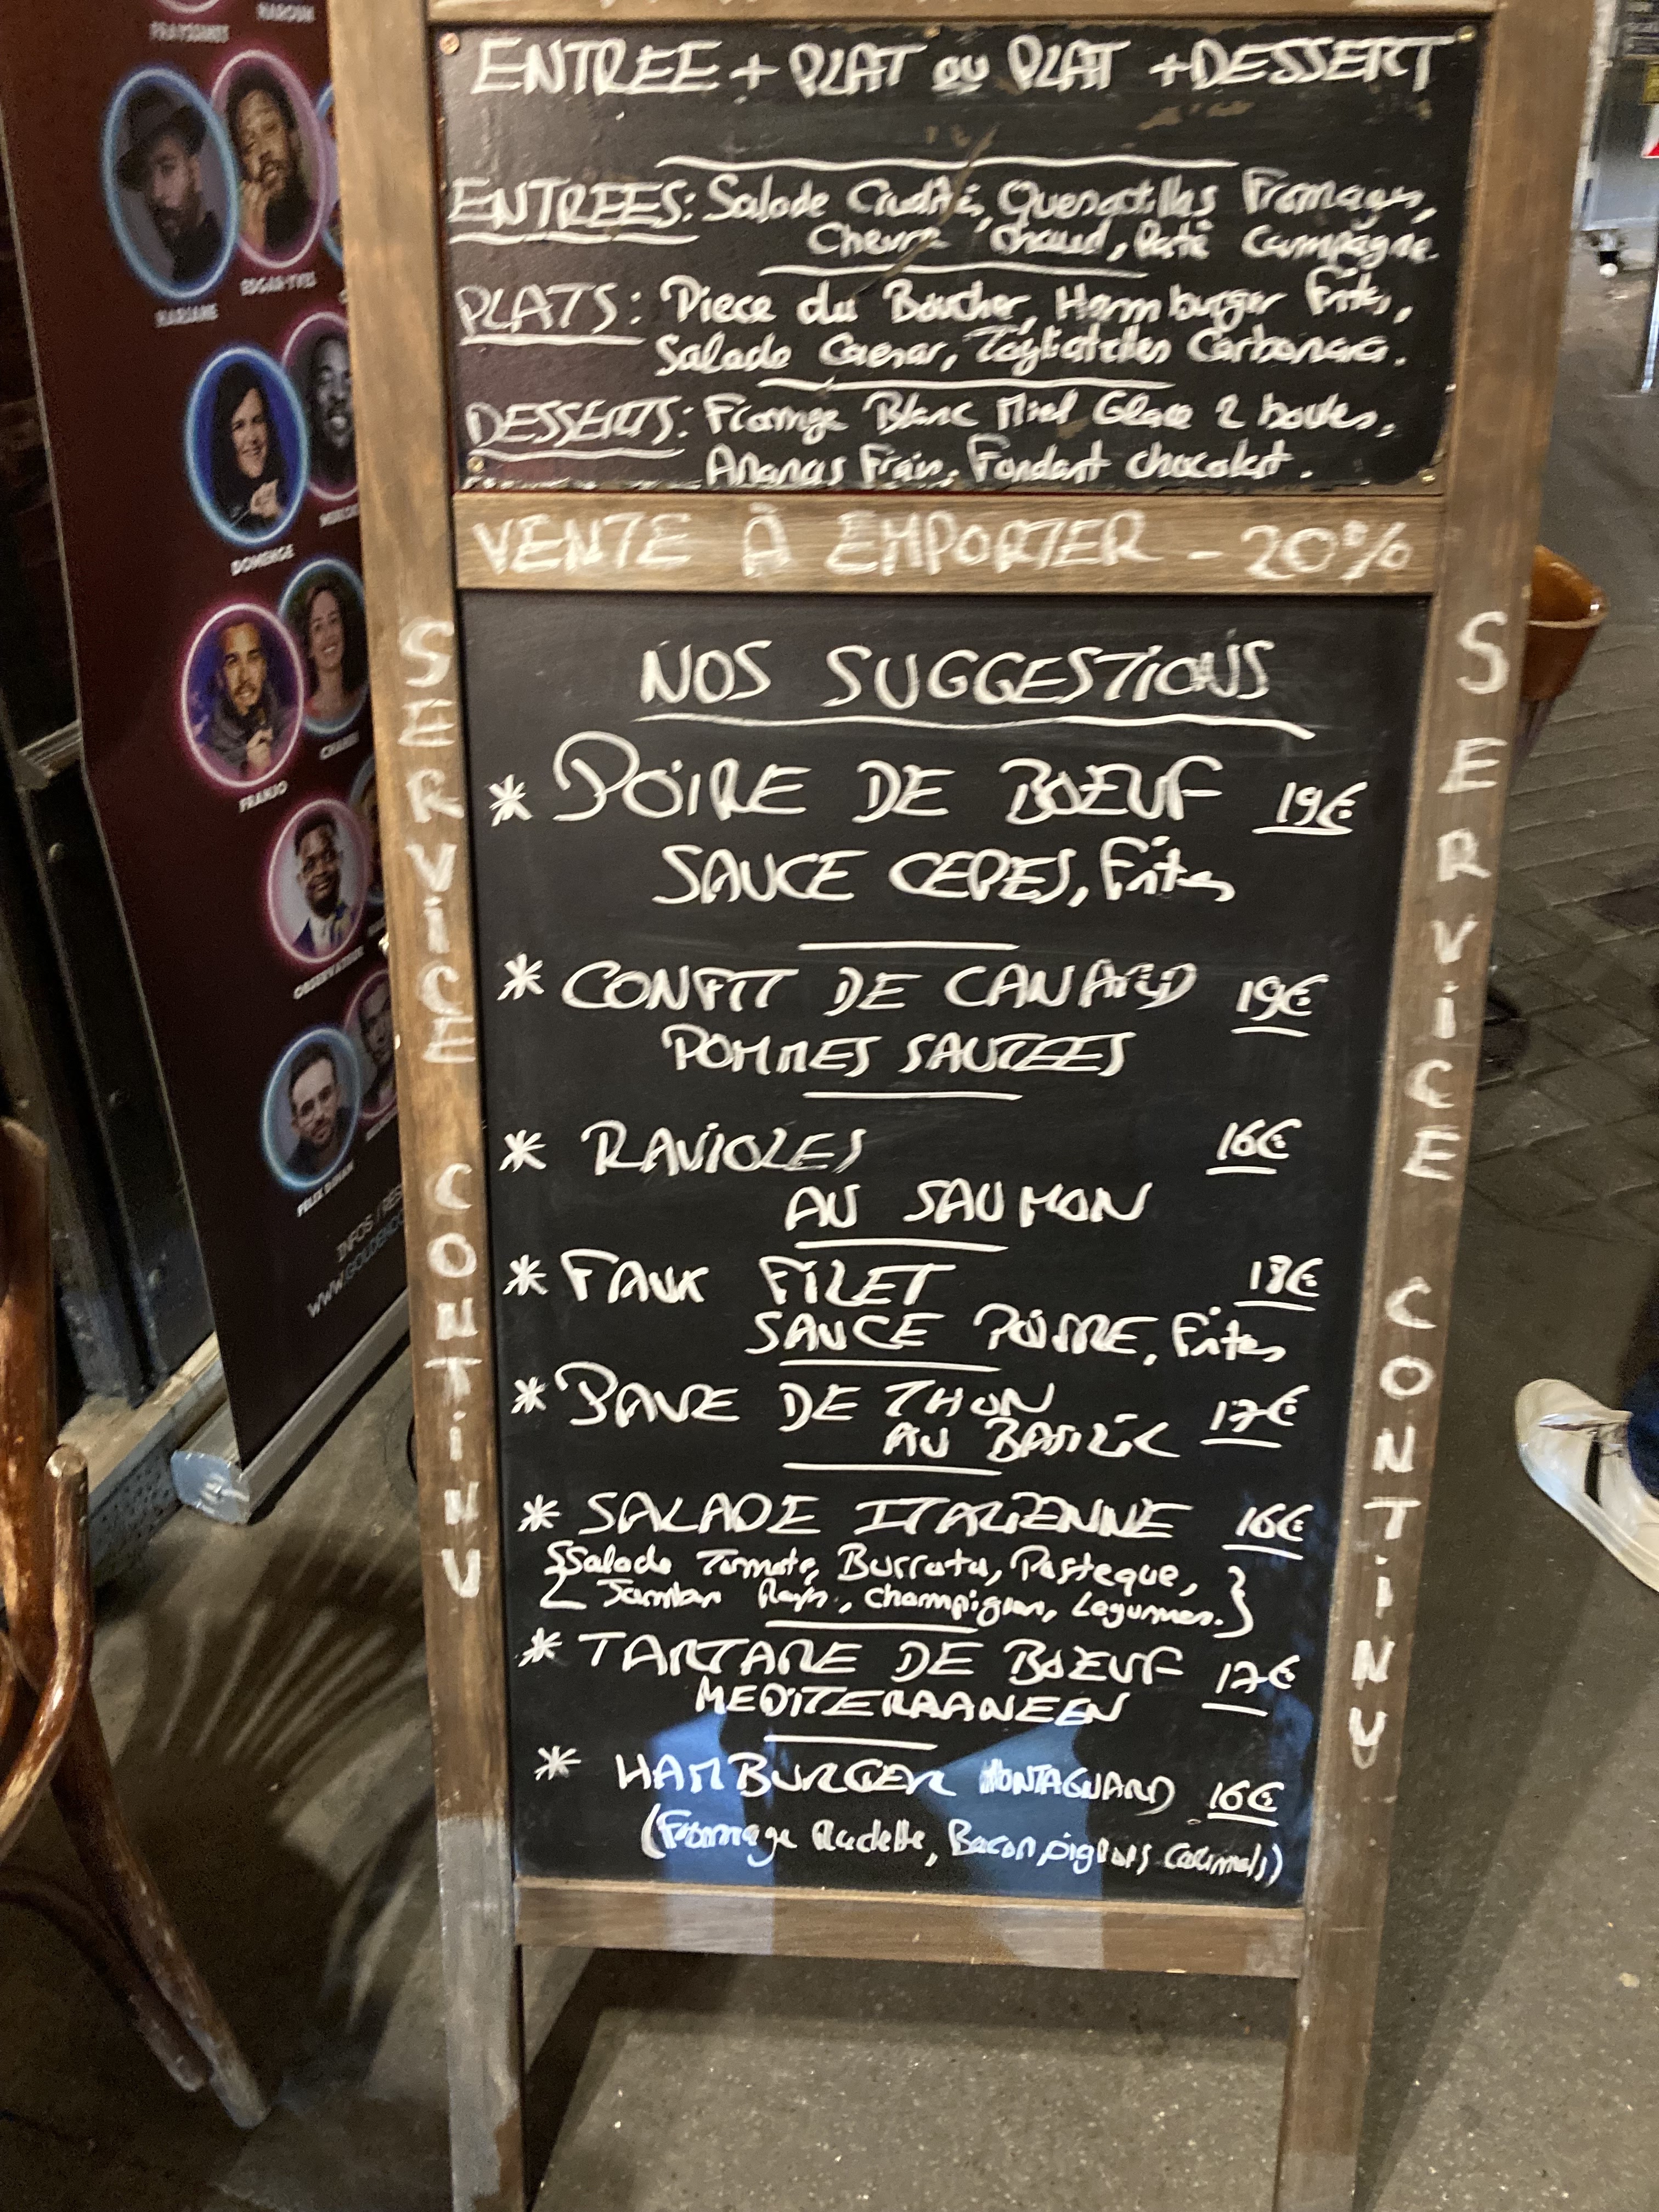 ENTREE + PLAT ou PLAT + DESSERT
ENTREES: Salade Crudité, Quesadillas Fromages,
Chevre Chaud, Paté Campagne.
PLATS: Piece du Boucher, Hamburger Frites,
Salade Caesar, Tagliatelles Carbonara.
DESSERTS: Fromage Blanc Miel Glace 2 boules,
Ananas Frais, Fondant chocolat.
VENTE À EMPORTER - 20%
NOS SUGGESTIONS
* POIRE DE BŒUF 19€
SAUCE CEPES, Frites
* CONFIT DE CANARD 19€
POMMES SAUTEES
* RAVIOLES 16€
AU SAUMON
* FAUX FILET 18€
SAUCE POIVRE, Frites
* PAVE DE THON 17€
AU BASILIC
* SALADE ITALIENNE 16€
{Salade Tomate, Burrata, Pasteque,
Jambon, Champignon, Legumes.}
* TARTARE DE BŒUF 17€
MEDITERRANEEN
* HAMBURGER MONTAGNARD 16€
(Fromage Raclette, Bacon, oignons Caramels)
SERVICE CONTINU
SERVICE CONTINU
FRAYSSINET
HAROUN
MARJANE
EDGAR-YVES
DOMENGE
FRANJO
FÉLIX DHJAN
INFOS / RÉS
WWW.GOLDENC